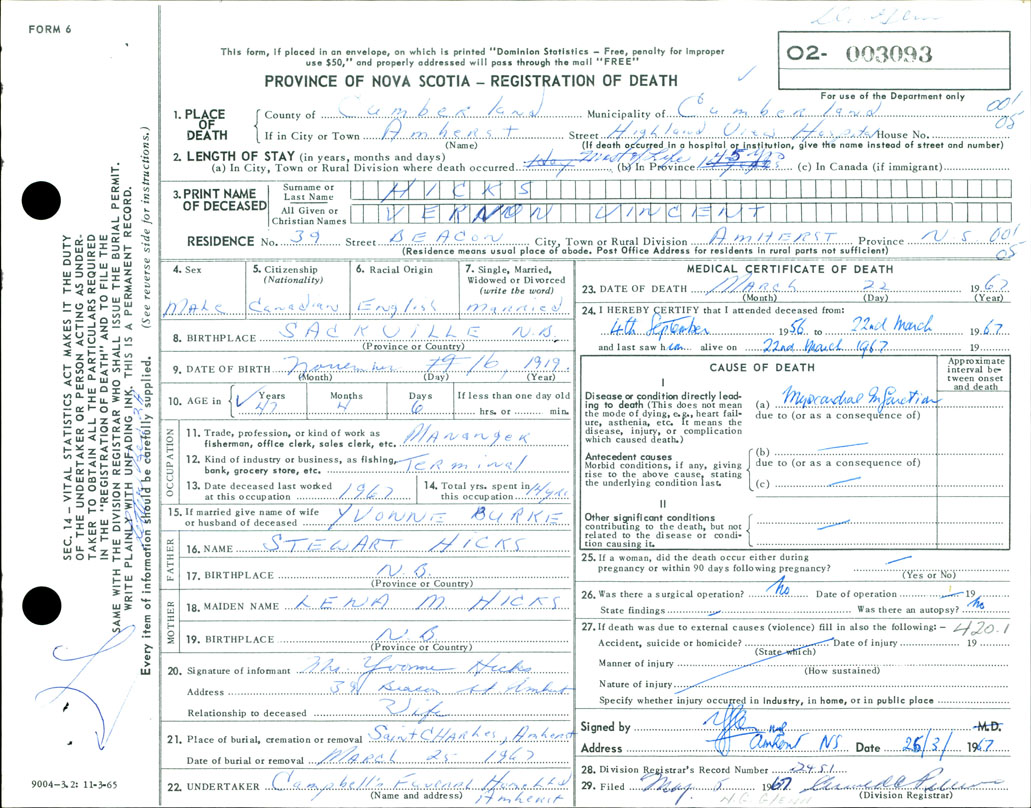 FORM 6
This form, if placed in an envelope, on which is printed "Dominion Statistics – Free, penalty for improper
use $50," and properly addressed will pass through the mail "FREE"
PROVINCE OF NOVA SCOTIA – REGISTRATION OF DEATH
O2- 003093
For use of the Department only
001
05
1. PLACE OF DEATH
County of Cumberland Municipality of Cumberland
If in City or Town Amherst Street Highland View Hospital House No.
(Name) (If death occurred in a hospital or institution, give the name instead of street and number)
2. LENGTH OF STAY (in years, months and days)
(a) In City, Town or Rural Division where death occurred Most of Life (b) In Province 45 yrs (c) In Canada (if immigrant)
3. PRINT NAME OF DECEASED
Surname or Last Name HICKS
All Given or Christian Names VERNON VINCENT
RESIDENCE No. 39 Street BEACON City, Town or Rural Division AMHERST Province N.S. 001
05
(Residence means usual place of abode. Post Office Address for residents in rural parts not sufficient)
4. Sex
Male
5. Citizenship (Nationality)
Canadian
6. Racial Origin
English
7. Single, Married, Widowed or Divorced (write the word)
Married
8. BIRTHPLACE SACKVILLE N.B.
(Province or Country)
9. DATE OF BIRTH November 16 1919.
(Month) (Day) (Year)
10. AGE in Years Months Days If less than one day old
47 4 6 hrs. or min.
OCCUPATION
11. Trade, profession, or kind of work as fisherman, office clerk, sales clerk, etc. Mananger
12. Kind of industry or business, as fishing, bank, grocery store, etc. Terminal
13. Date deceased last worked at this occupation 1967
14. Total yrs. spent in this occupation 14 yrs.
15. If married give name of wife or husband of deceased YVONNE BURKE
FATHER
16. NAME STEWART HICKS
17. BIRTHPLACE N.B.
(Province or Country)
MOTHER
18. MAIDEN NAME LENA M HICKS
19. BIRTHPLACE N.B.
(Province or Country)
20. Signature of informant Mrs. Yvonne Hicks
Address 39 Beacon St Amherst
Relationship to deceased Wife
21. Place of burial, cremation or removal Saint CHArles, Amherst
Date of burial or removal March 25 1967
22. UNDERTAKER Campbell's Funeral Home Ltd
(Name and address) Amherst
MEDICAL CERTIFICATE OF DEATH
23. DATE OF DEATH March 22 1967
(Month) (Day) (Year)
24. I HEREBY CERTIFY that I attended deceased from:
4th September 1956 to 22nd March 1967
and last saw him alive on 22nd March 1967 19
CAUSE OF DEATH
Approximate interval between onset and death
I
Disease or condition directly leading to death (This does not mean the mode of dying, e.g., heart failure, asthenia, etc. It means the disease, injury, or complication which caused death.)
(a) Myocardial Infarction
due to (or as a consequence of)
Antecedent causes
Morbid conditions, if any, giving rise to the above cause, stating the underlying condition last.
(b)
due to (or as a consequence of)
(c)
II
Other significant conditions
contributing to the death, but not related to the disease or condition causing it.
25. If a woman, did the death occur either during
pregnancy or within 90 days following pregnancy?
(Yes or No)
26. Was there a surgical operation? No Date of operation 19
State findings Was there an autopsy? No
27. If death was due to external causes (violence) fill in also the following: – 420.1
Accident, suicide or homicide? Date of injury 19
(State which)
Manner of injury
(How sustained)
Nature of injury
Specify whether injury occurred in industry, in home, or in public place
Signed by M.D.
Address Amherst NS Date 25/3/1967
28. Division Registrar's Record Number 2451
29. Filed May 5 1967
(Division Registrar)
SEC. 14 – VITAL STATISTICS ACT MAKES IT THE DUTY
OF THE UNDERTAKER OR PERSON ACTING AS UNDERTAKER
TO OBTAIN ALL THE PARTICULARS REQUIRED
IN THE "REGISTRATION OF DEATH" AND TO FILE THE
SAME WITH THE DIVISION REGISTRAR WHO SHALL ISSUE THE BURIAL PERMIT.
WRITE PLAINLY WITH UNFADING INK. THIS IS A PERMANENT RECORD.
Every item of information should be carefully supplied. (See reverse side for instructions.)
9004-3.2: 11-3-65